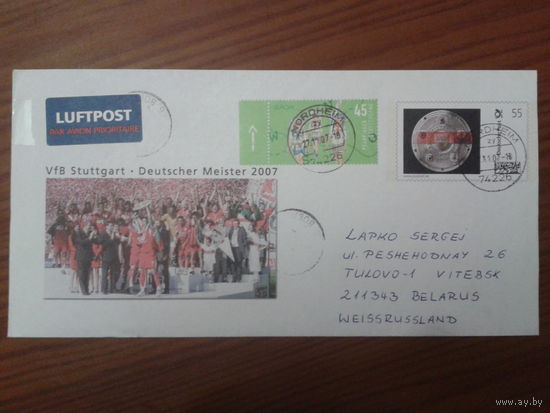 LUFTPOST
PAR AVION PRIORITAIRE
45
55
NORDHEIM
NORDHEIM
74226
74226
VfB Stuttgart · Deutscher Meister 2007
LAPKO SERGEJ
ul. PESHEHODNAY 26
TULOVO-1 VITEBSK
211343 BELARUS
WEISSRUSSLAND
www.ay.by